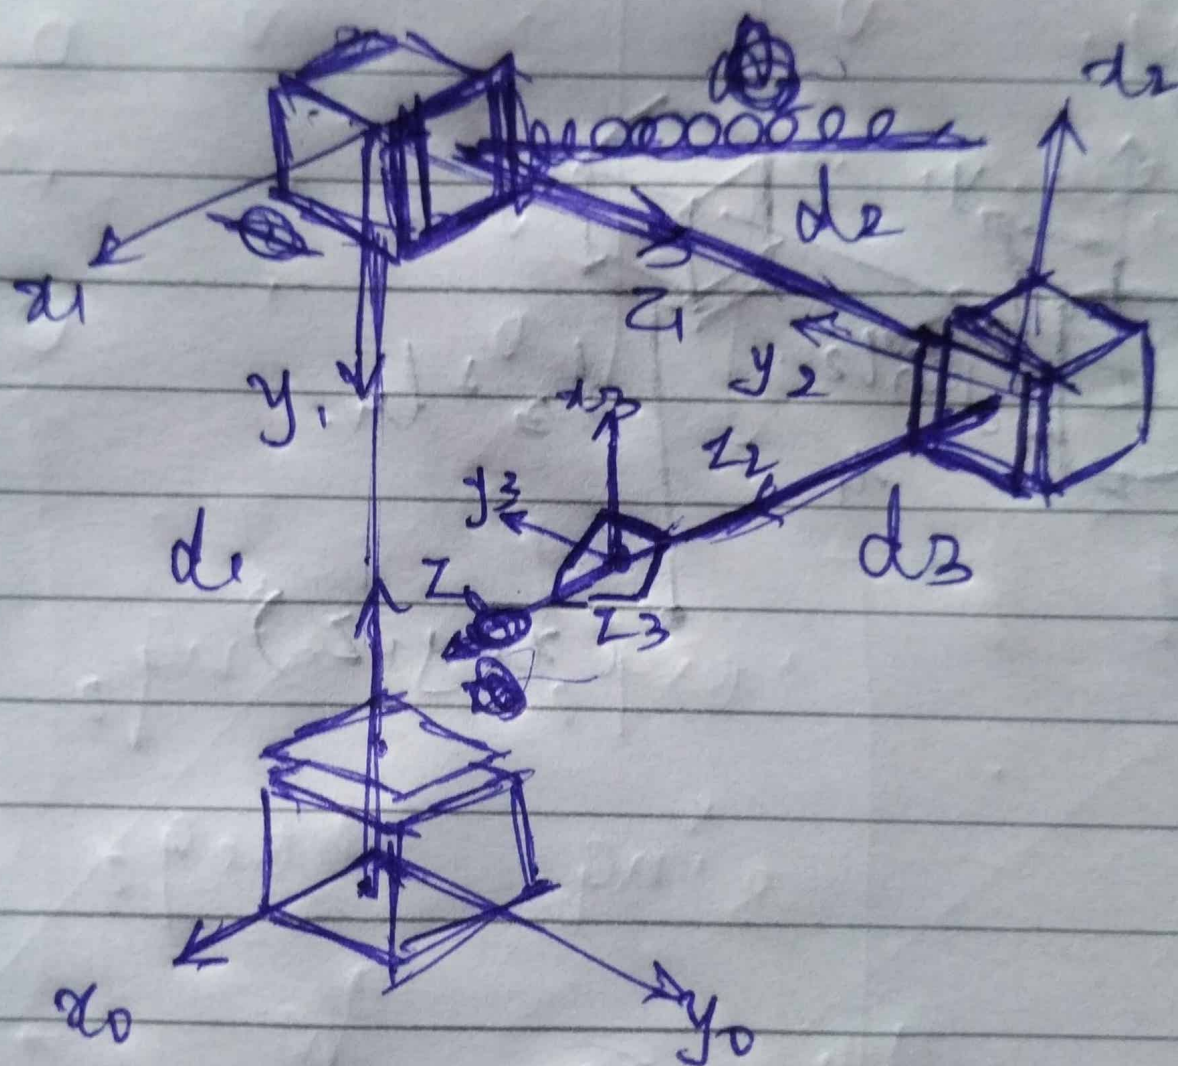 x2
d2
x1
z1
y2
y1
x3
z2
y3
d1
d3
z
z3
x0
y0